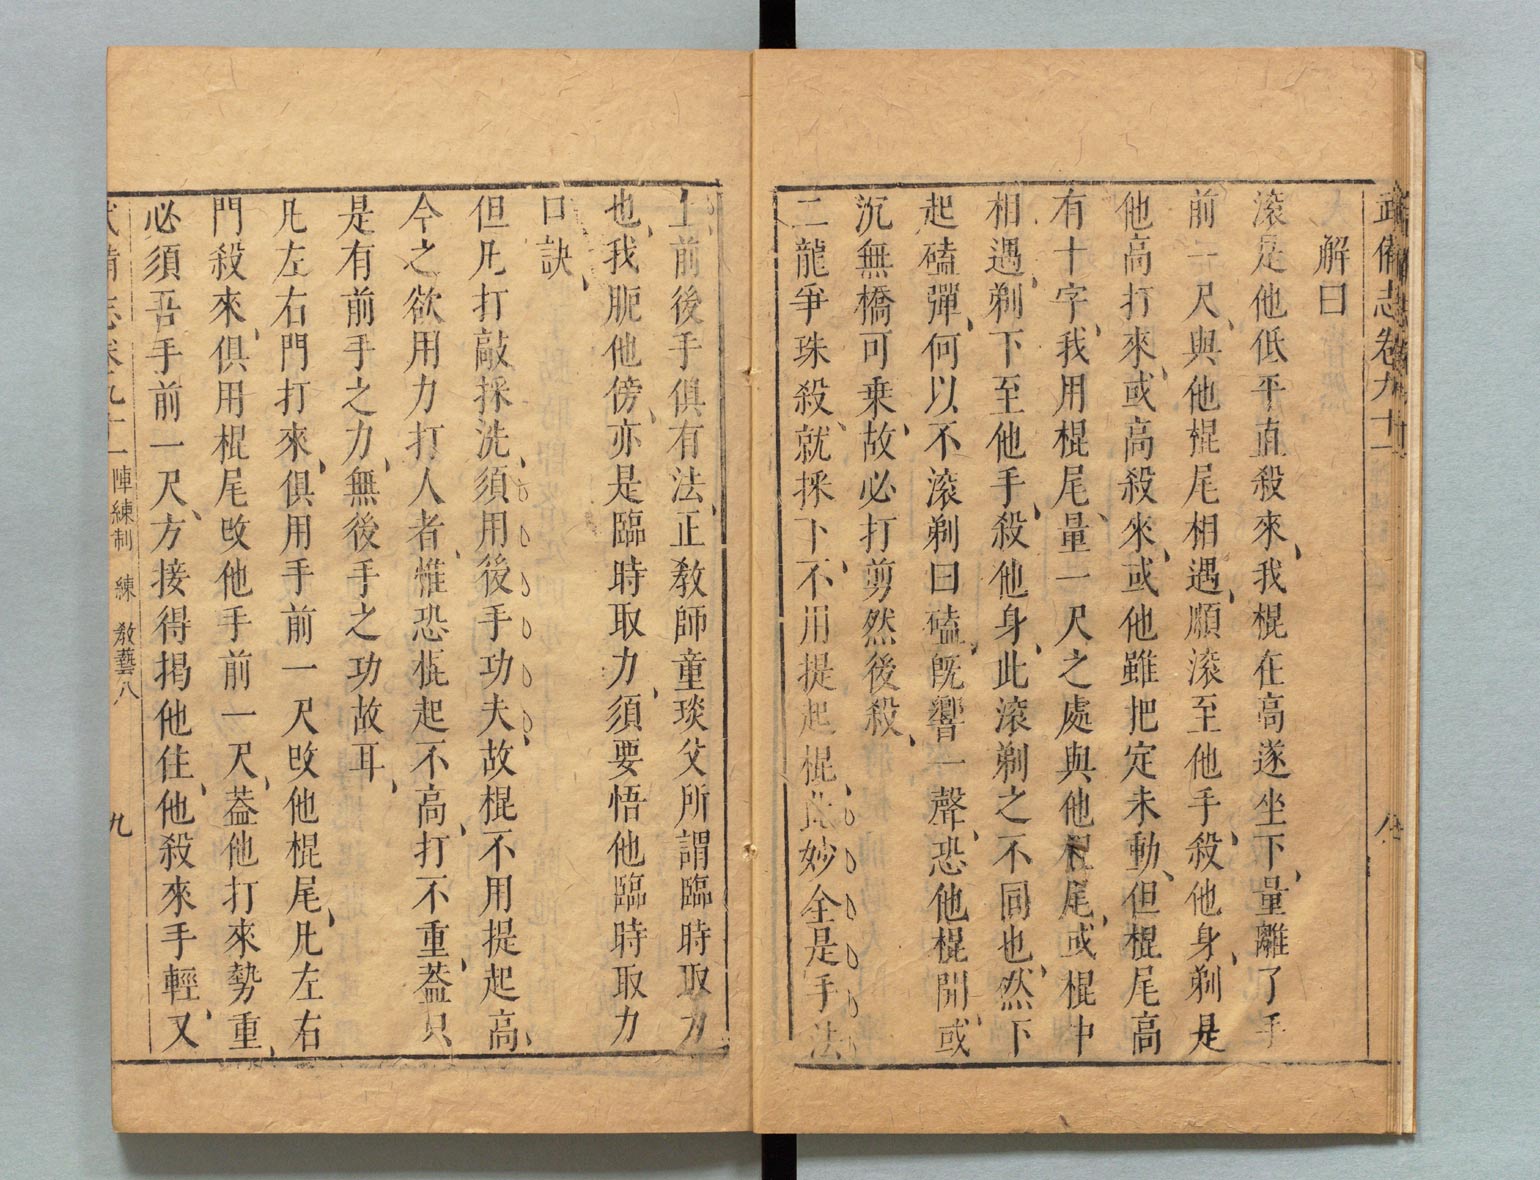 武備志卷九十一
解曰
滚是他低平直殺來、我棍在高遂坐下、量離了手
前一尺、與他棍尾相遇、順滚至他手、殺他身、剃是
他高打來、或高殺來、或他雖把定未動、但棍尾高
有十字、我用棍尾、量一尺之處與他棍尾、或棍中
相遇、剃下至他手、殺他身、此滚剃之不同也、然下
起磕彈、何以不滚剃曰磕、既響一聲、恐他棍開、或
沉無橋可乗、故必打剪然後殺、
二龍爭珠殺、就採下、不用提起棍、此妙全是手法
上前後手俱有法、正教師童琰父所謂臨時取力
也、我脈他傍、亦是臨時取力、須要悟他臨時取力
口訣、
但凡打敲採洗、須用後手功夫、故棍不用提起高、
今之欲用力打人者、惟恐棍起不高、打不重、葢只
是有前手之力、無後手之功故耳、
凡左右門打來、俱用手前一尺敀他棍尾、凡左右
門殺來、俱用棍尾敀他手前一尺、葢他打來勢重、
必須吾手前一尺、方接得掲他住、他殺來手輕、又
武備志卷九十一 陣練制 練 教藝八 九